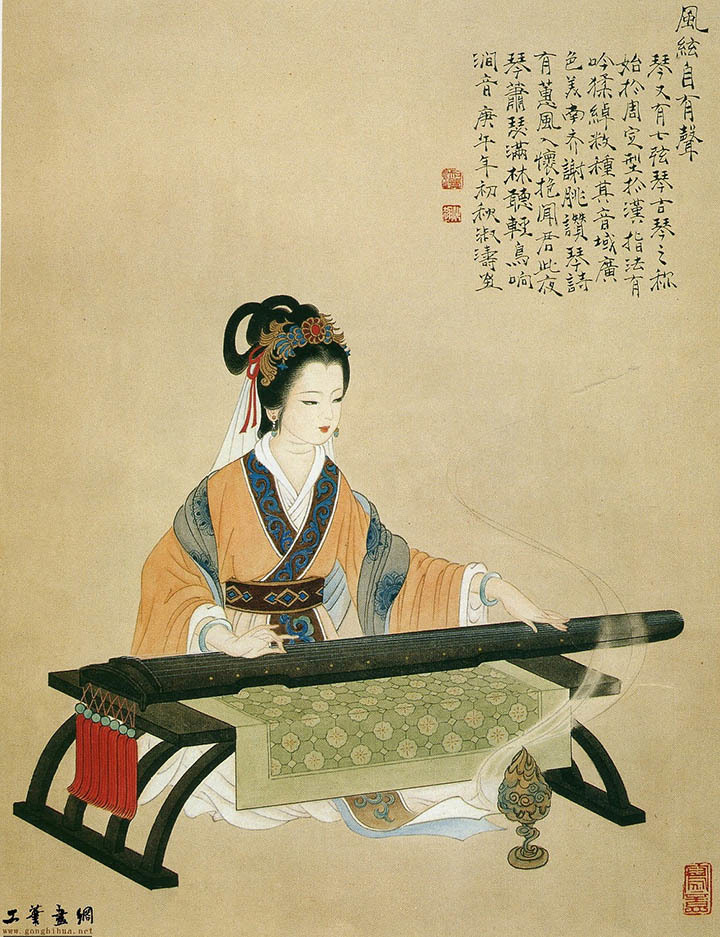 風絃自有聲
琴又有七弦琴古琴之称
始扵周定型扵漢指法有
吟猱綽数種其音域廣
色美南齐謝朓讚琴詩
有蕙風入懷抱聞君此夜
琴蕭瑟滿林聽輕鳥响
澗音庚午年初秋淑濤画
工筆畫網
www.gongbihua.net